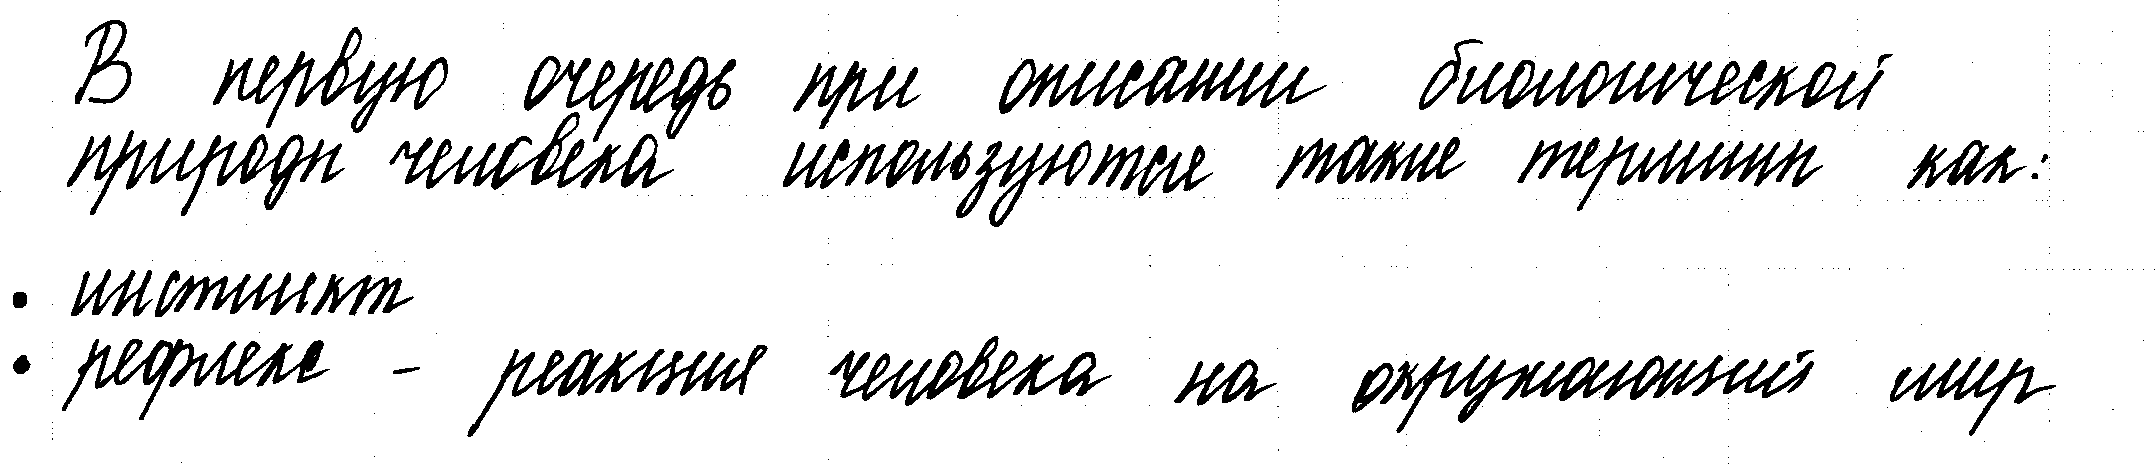 В первую очередь при описании биологической
природы человека используются такие термины как:
• инстинкт
• рефлекс - реакция человека на окружающий мир